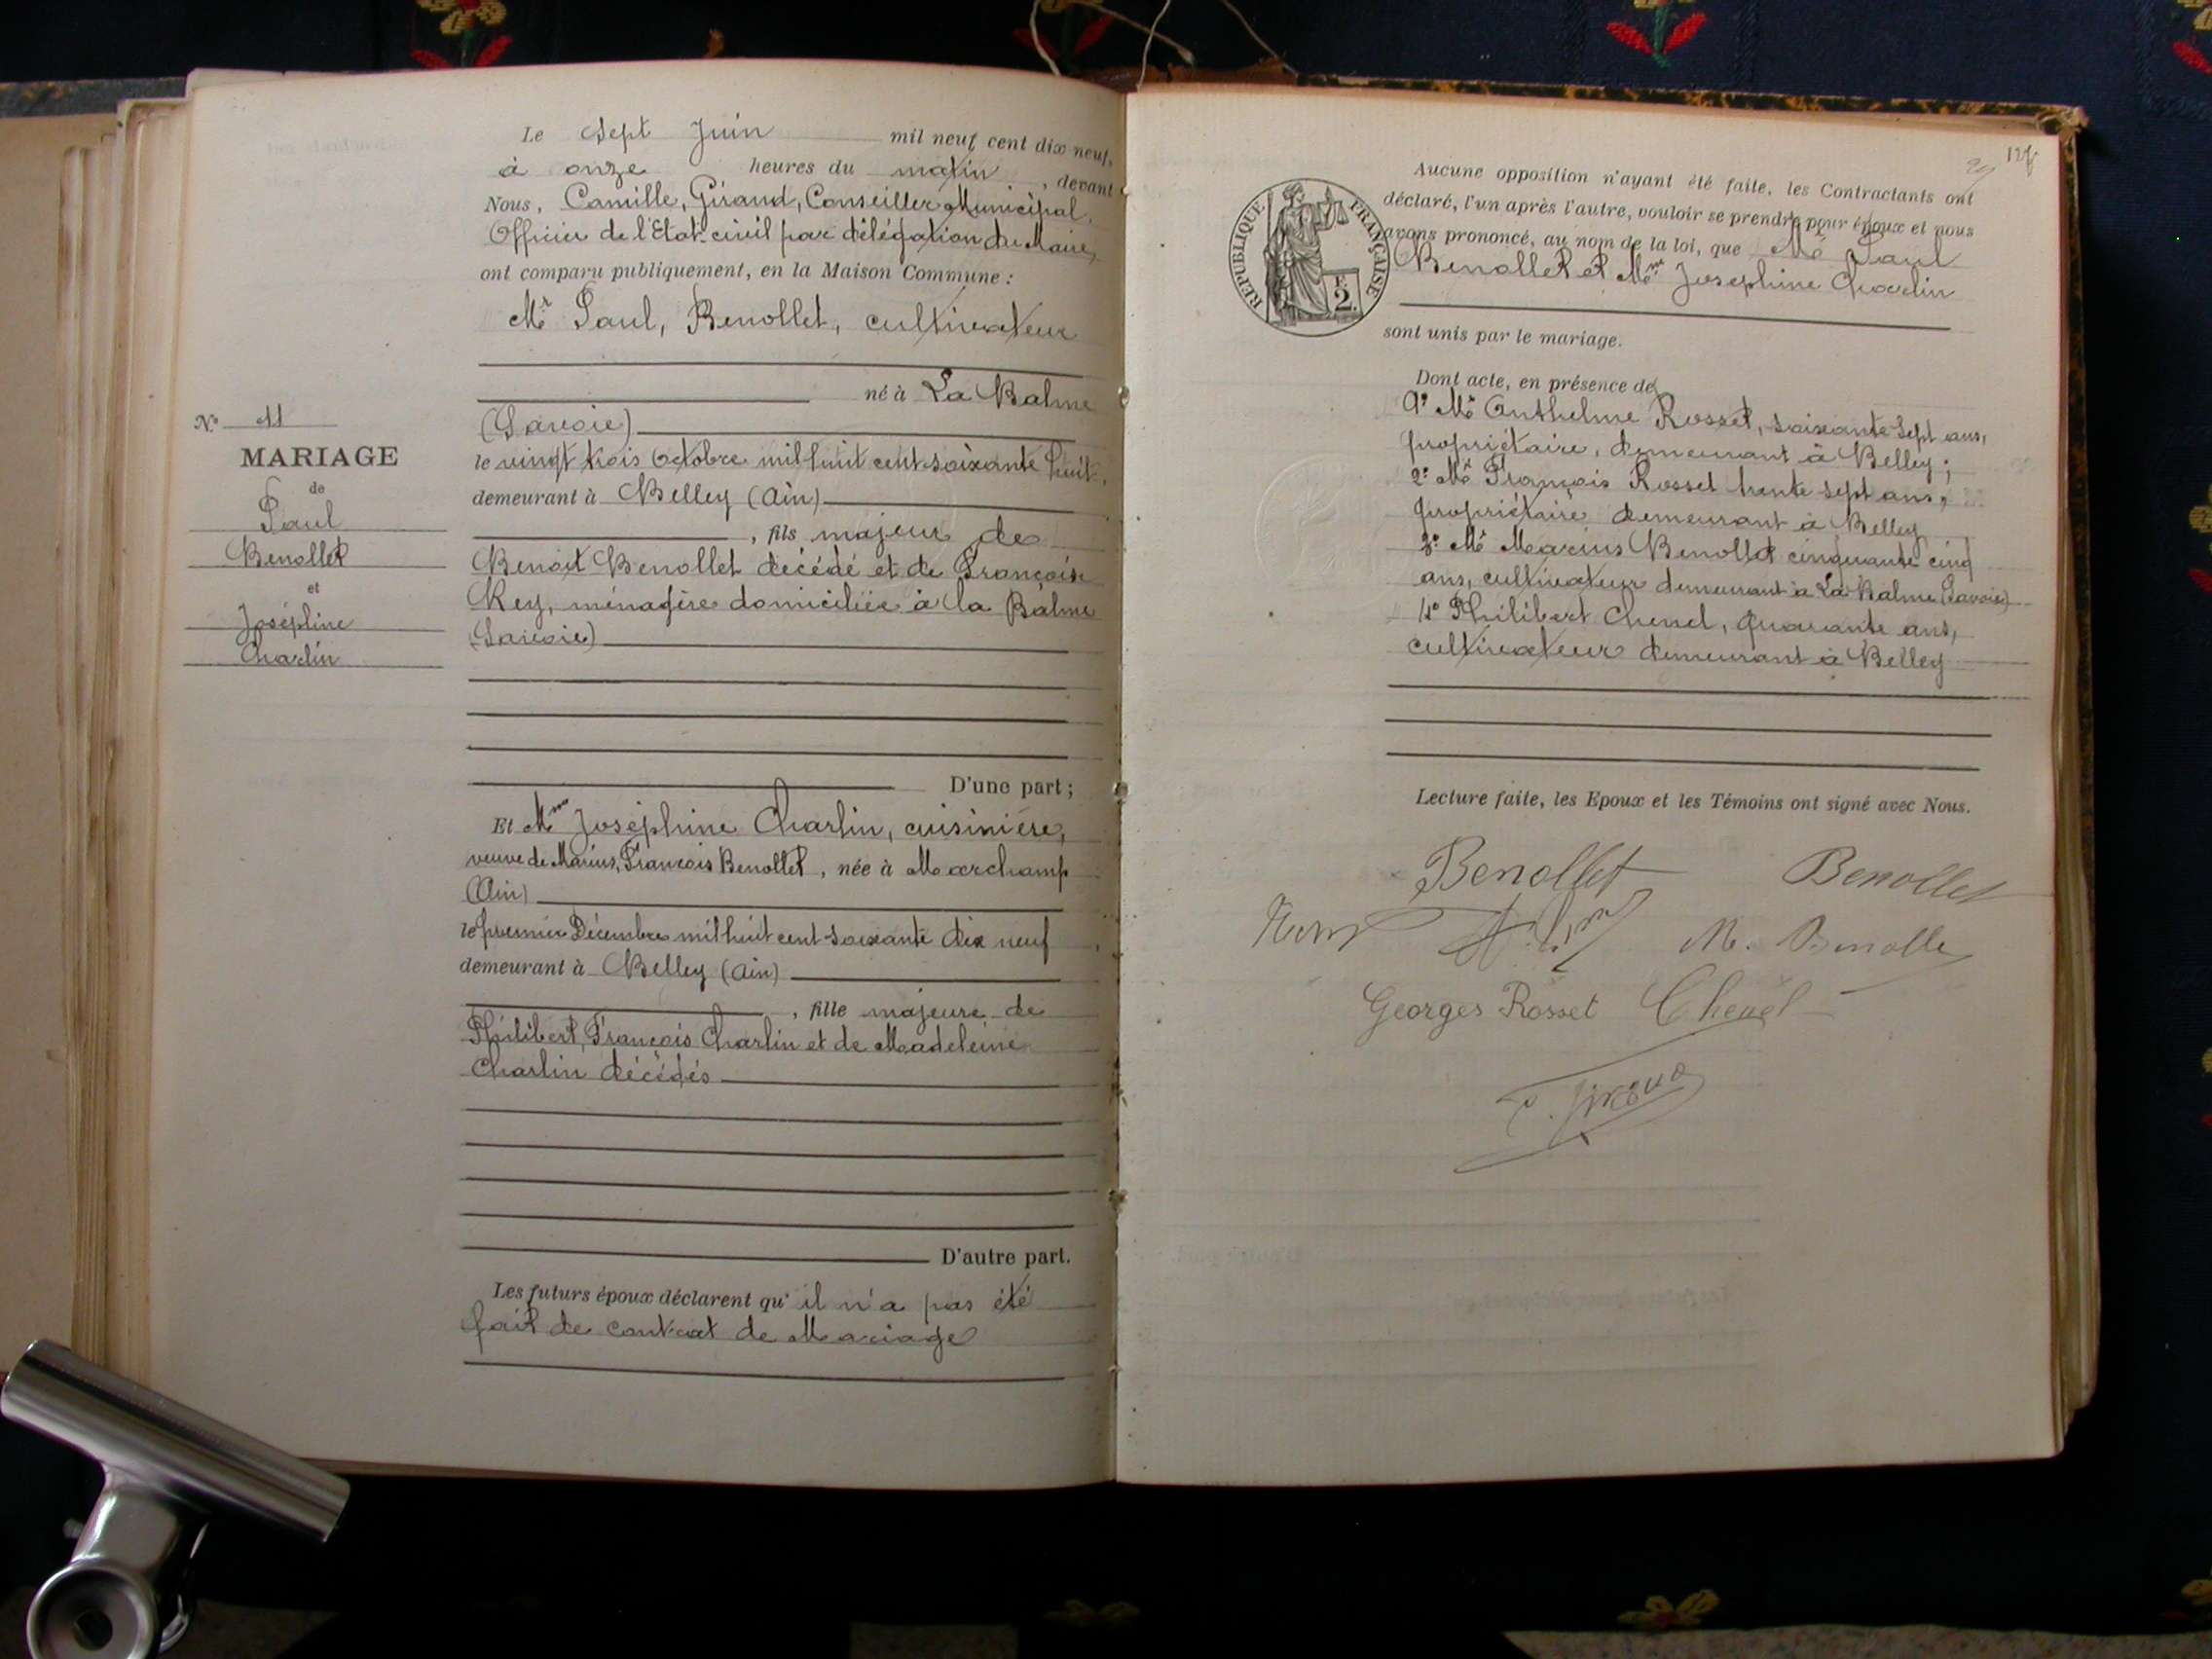 Le Sept Juin mil neuf cent dix neuf,
à onze heures du matin, devant
Nous, Camille, Giraud, Conseiller Municipal,
Officier de l'Etat-civil par délégation du Maire,
ont comparu publiquement, en la Maison Commune :
Mr Paul, Benollet, cultivateur
né à La Balme
(Savoie)
le vingt trois Octobre mil huit cent soixante huit,
demeurant à Belley (Ain)
, fils majeur de
Benoit Benollet décédé et de Françoise
Rey, ménagère domiciliée à la Balme
(Savoie)
D'une part ;
Et Mme Joséphine Charlin, cuisinière,
veuve de Marius, François Benollet, née à Marchamp
(Ain)
le premier Décembre mil huit cent soixante dix neuf,
demeurant à Belley (Ain)
, fille majeure de
Philibert, François Charlin et de Madeleine
Charlin décédés
D'autre part.
Les futurs époux déclarent qu'il n'a pas été
fait de contrat de Mariage
No 11
MARIAGE
de
Paul
Benollet
et
Joséphine
Charlin
REPUBLIQUE FRANÇAISE
F.
2
Aucune opposition n'ayant été faite, les Contractants ont
déclaré, l'un après l'autre, vouloir se prendre pour époux et nous
avons prononcé, au nom de la loi, que Mr Paul
Benollet et Mme Joséphine Charlin
sont unis par le mariage.
Dont acte, en présence de
1° Mr Anthelme Rosset, soixante sept ans,
propriétaire, demeurant à Belley ;
2° Mr François Rosset trente sept ans,
propriétaire demeurant à Belley
3° Mr Marius Benollet cinquante cinq
ans, cultivateur demeurant à La Balme (Savoie)
4° Philibert Chenel, quarante ans,
cultivateur demeurant à Belley
Lecture faite, les Epoux et les Témoins ont signé avec Nous.
Benollet Benollet
M. Benolle
Georges Rosset Chenel
C. Giraud